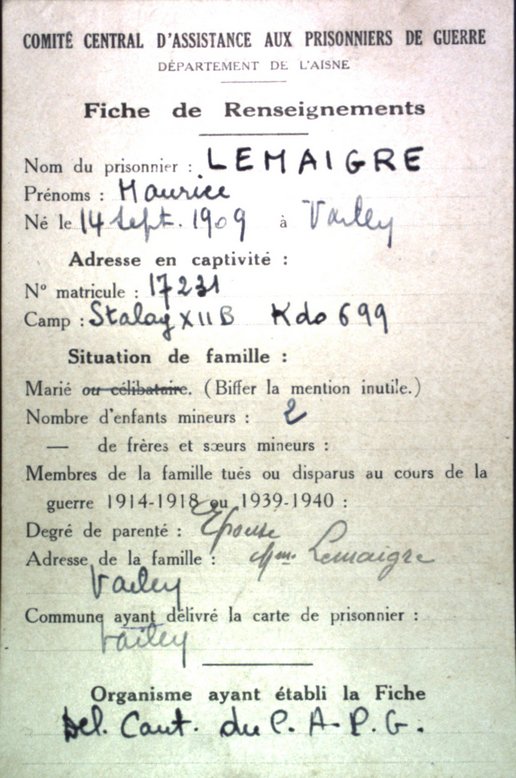 COMITÉ CENTRAL D'ASSISTANCE AUX PRISONNIERS DE GUERRE
DÉPARTEMENT DE L'AISNE
Fiche de Renseignements
Nom du prisonnier : LEMAIGRE
Prénoms : Maurice
Né le 14 Sept. 1909 à Vailly
Adresse en captivité :
N° matricule : 17231
Camp : Stalag XII B Kdo 699
Situation de famille :
Marié ou célibataire. (Biffer la mention inutile.)
Nombre d'enfants mineurs : 2
— de frères et sœurs mineurs :
Membres de la famille tués ou disparus au cours de la
guerre 1914-1918 ou 1939-1940 :
Degré de parenté : Epouse
Adresse de la famille : Mme Lemaigre
Vailly
Commune ayant délivré la carte de prisonnier :
Vailly
Organisme ayant établi la Fiche
Del. Cant. du C. A. P. G.